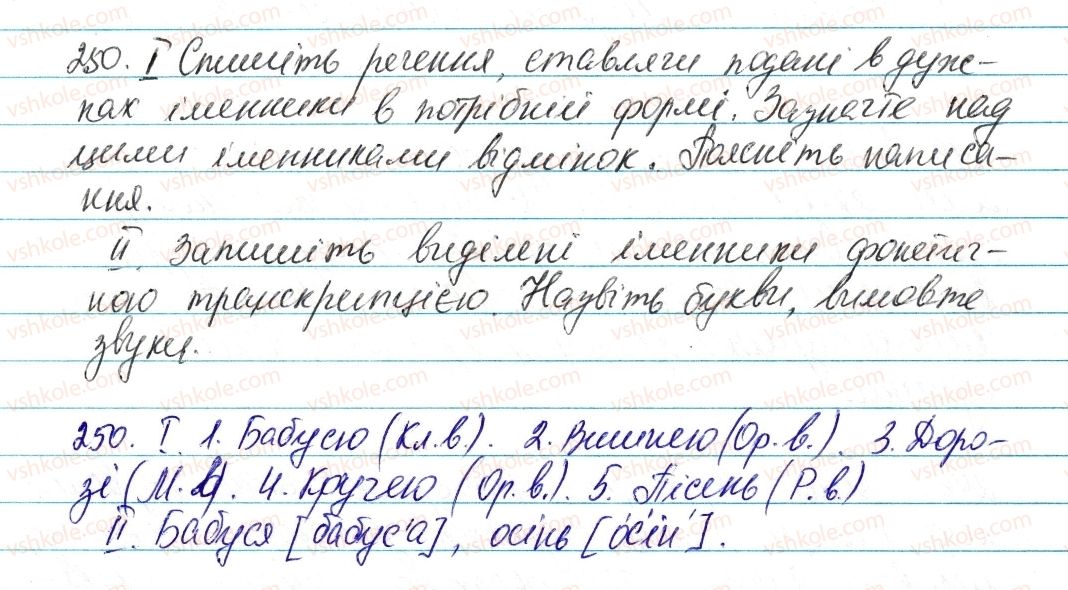 250. I Спишіть речення, ставлячи подані в дуж-
ках іменники в потрібній формі. Зазначте над
цими іменниками відмінок. Поясніть написа-
ння.
II. Запишіть виділені іменники фонетич-
ною транскрипцією. Назвіть букви, вимовте
звуки.
250. I. 1. Бабусю (Кл.в.). 2. Вишнею (Ор.в.). 3. Доро-
зі (М.в). 4. Кручею (Ор.в.). 5. Пісень (Р.в.)
II. Бабуся [бабус'а], осінь [ос'ін'].